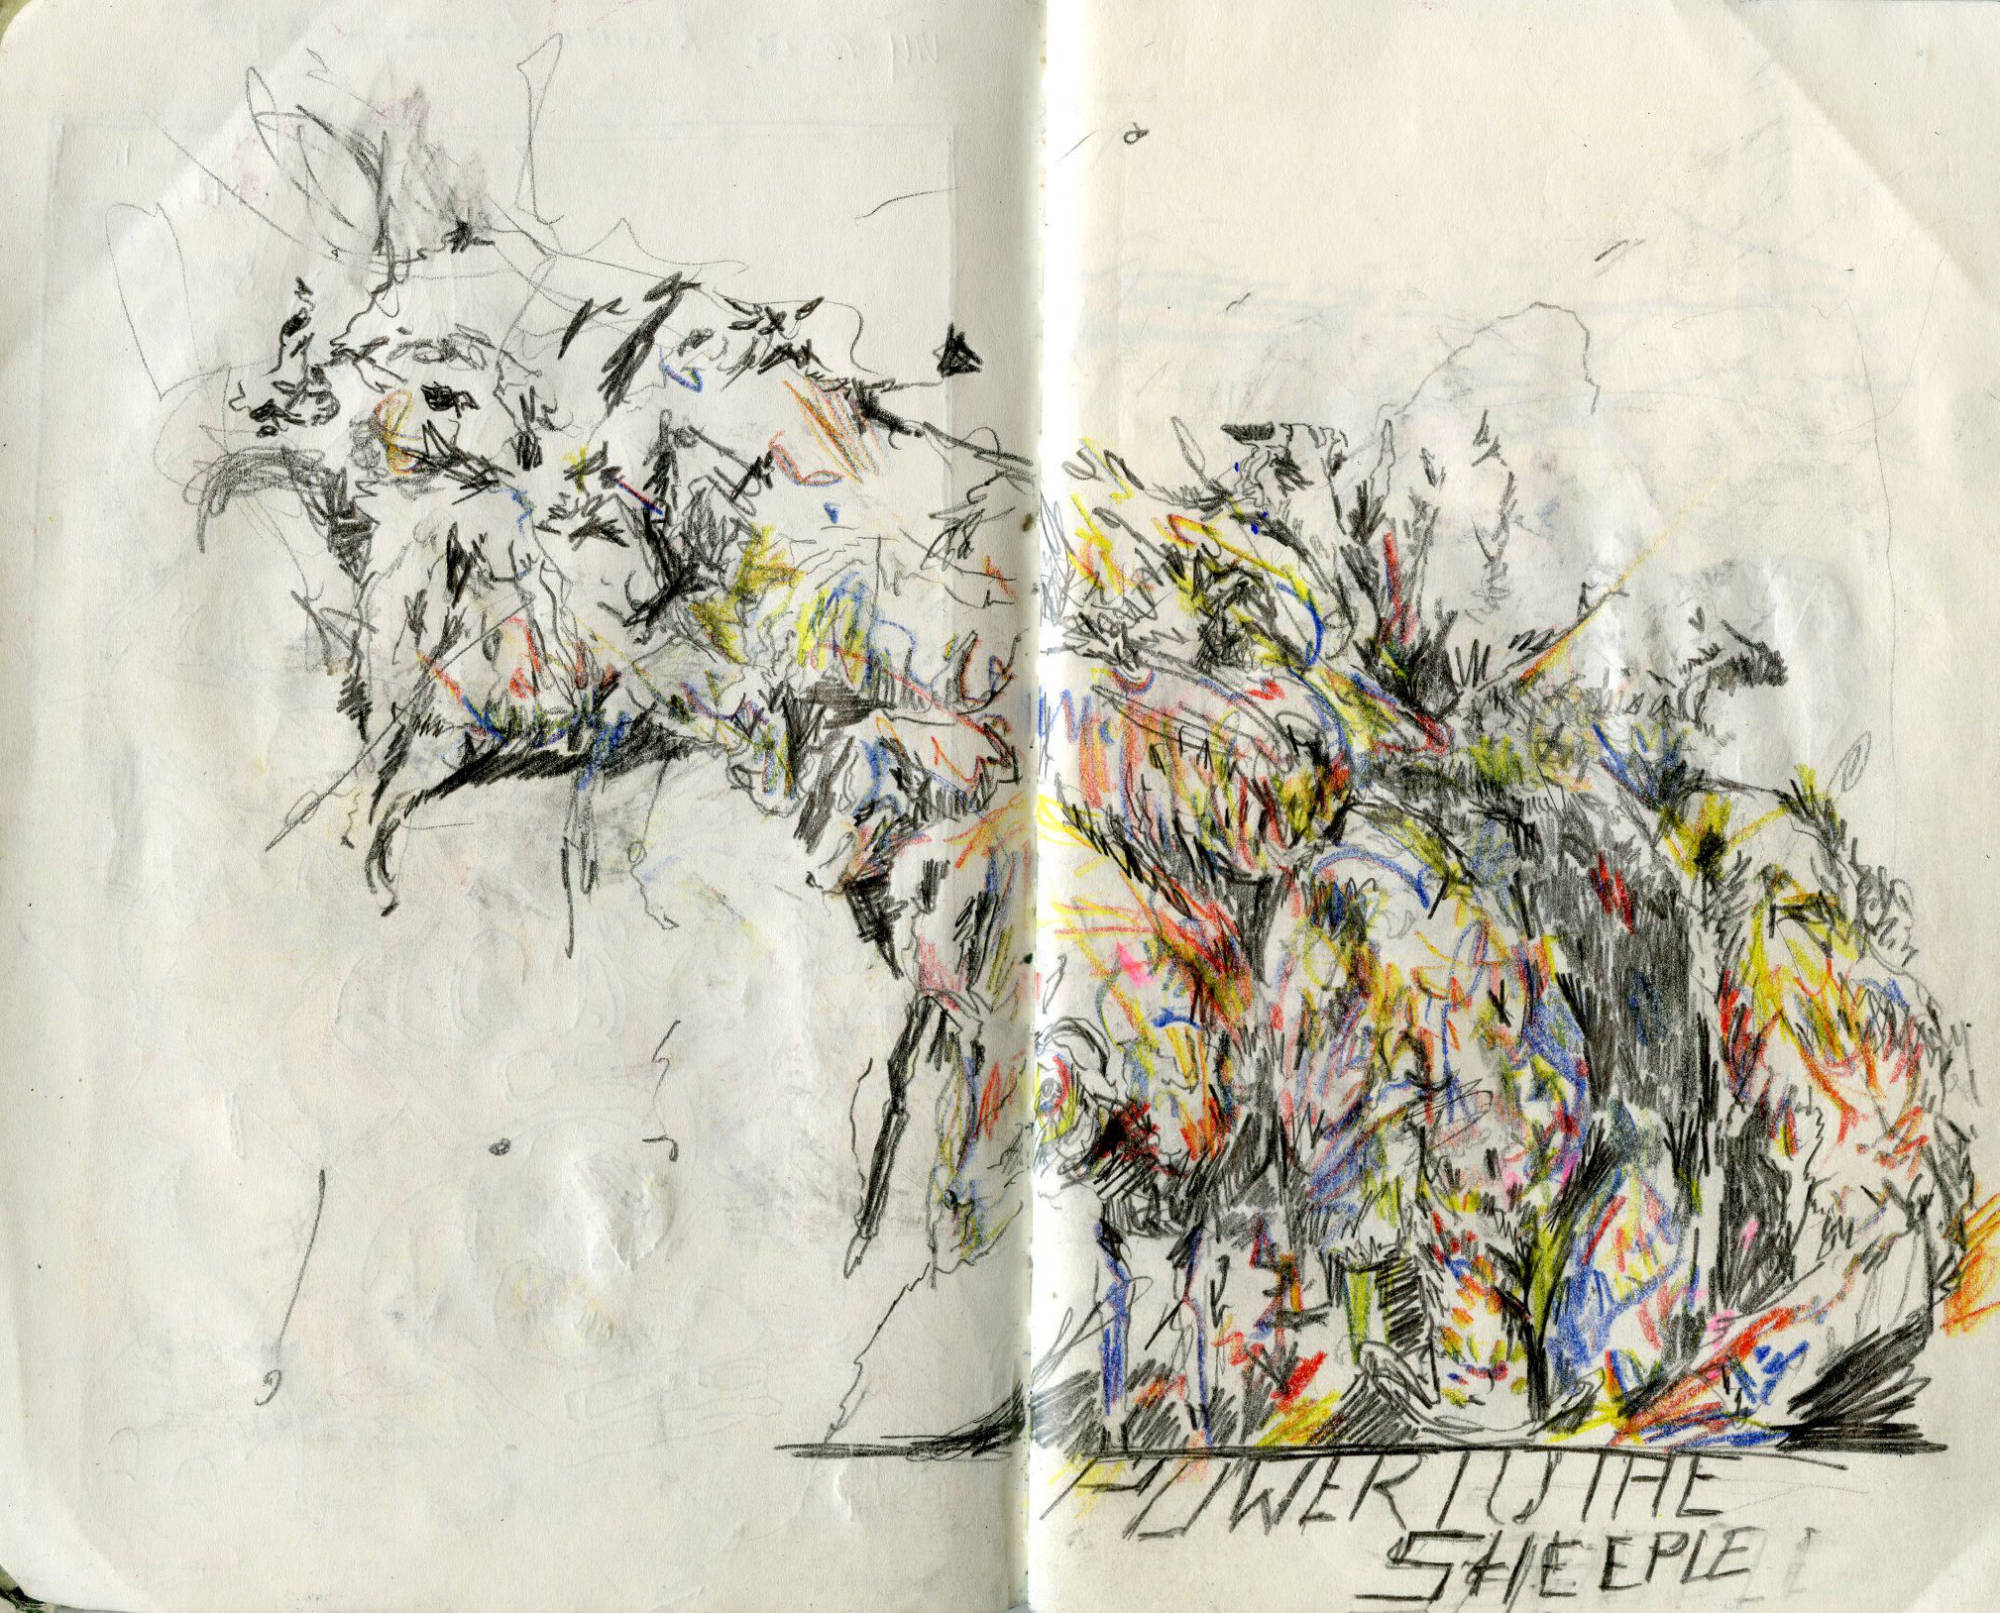 POWER TO THE
SHEEPLE